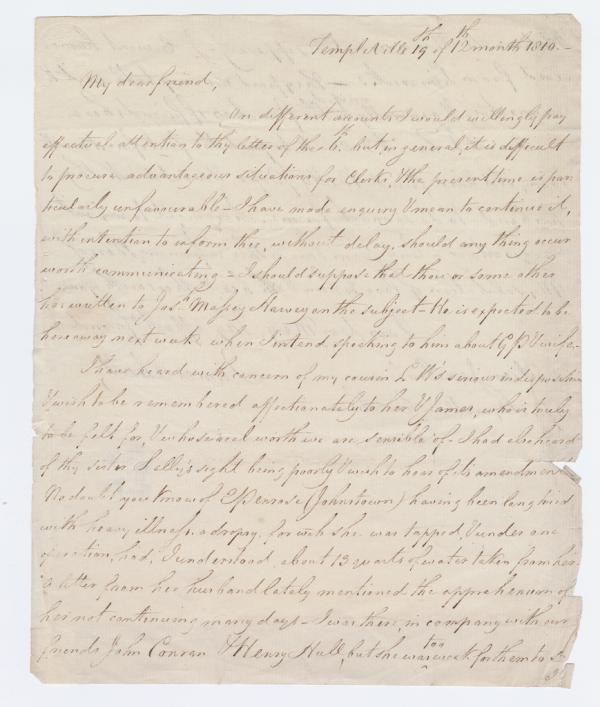 Temple Ville 19th of 12th month 1810.–
My dear friend,
On different accounts I would willingly pay
effectual attention to thy letter of the 6th. but, in general, it is difficult
to procure advantageous situations for Clerks, & the present time is par
ticularly unfavourable – I have made enquiry & mean to continue it,
with intention to inform thee, without delay, should any thing occur
worth communicating – I should suppose that thou or some other
has written to Jos. Massey Harvey on the subject – He is expected to be
hereaway next week when I intend speaking to him about G P & wife –
I have heard with concern of my cousin L W's serious indisposition
& wish to be remembered affectionately to her & James, who is truly
to be felt for, & whose real worth we are sensible of – I had also heard
of thy sister Selly's sight being poorly & wish to hear of its amendmen
No doubt you know of E Penrose (Johnstown) having been long tried
with heavy illness, a dropsy, for wch she was tapped, & under one
operation, had, I understood, about 13 quarts of water taken from her.
a letter from her husband lately mentioned the apprehension of
her not continuing many days – I was there, in company with our
friends John Conran & Henry Hull, but she was too weak for them to